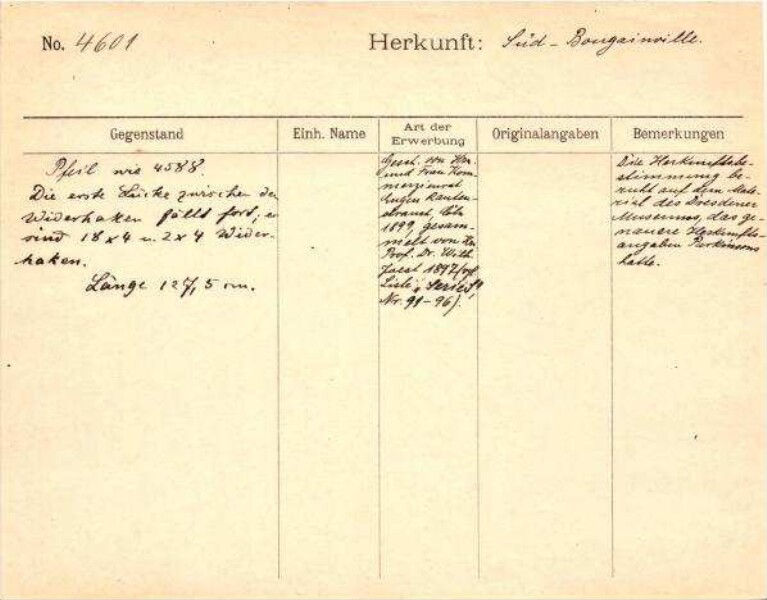 No. 4601
Herkunft: Süd-Bougainville.
Gegenstand
Einh. Name
Art der Erwerbung
Originalangaben
Bemerkungen
Pfeil wie 4588.
Die erste Lücke zwischen den
Widerhaken fällt fort; es
sind 18 x 4 u. 2 x 4 Wider-
haken.
Länge 127,5 cm.
Gesch. von Herrn
und Frau Kom-
merzienrat
Eugen Rauten-
strauch, Cöln
1899, gesam-
melt von Hn.
Prof. Dr. Wilh.
Joest 1897 (vgl.
Liste
Nr. 91-96).
Die Herkunftsbe-
stimmung be-
ruht auf dem Mate-
rial des Dresdener
Museums, das ge-
nauere Herkunfts-
angaben Parkinsons
hatte.